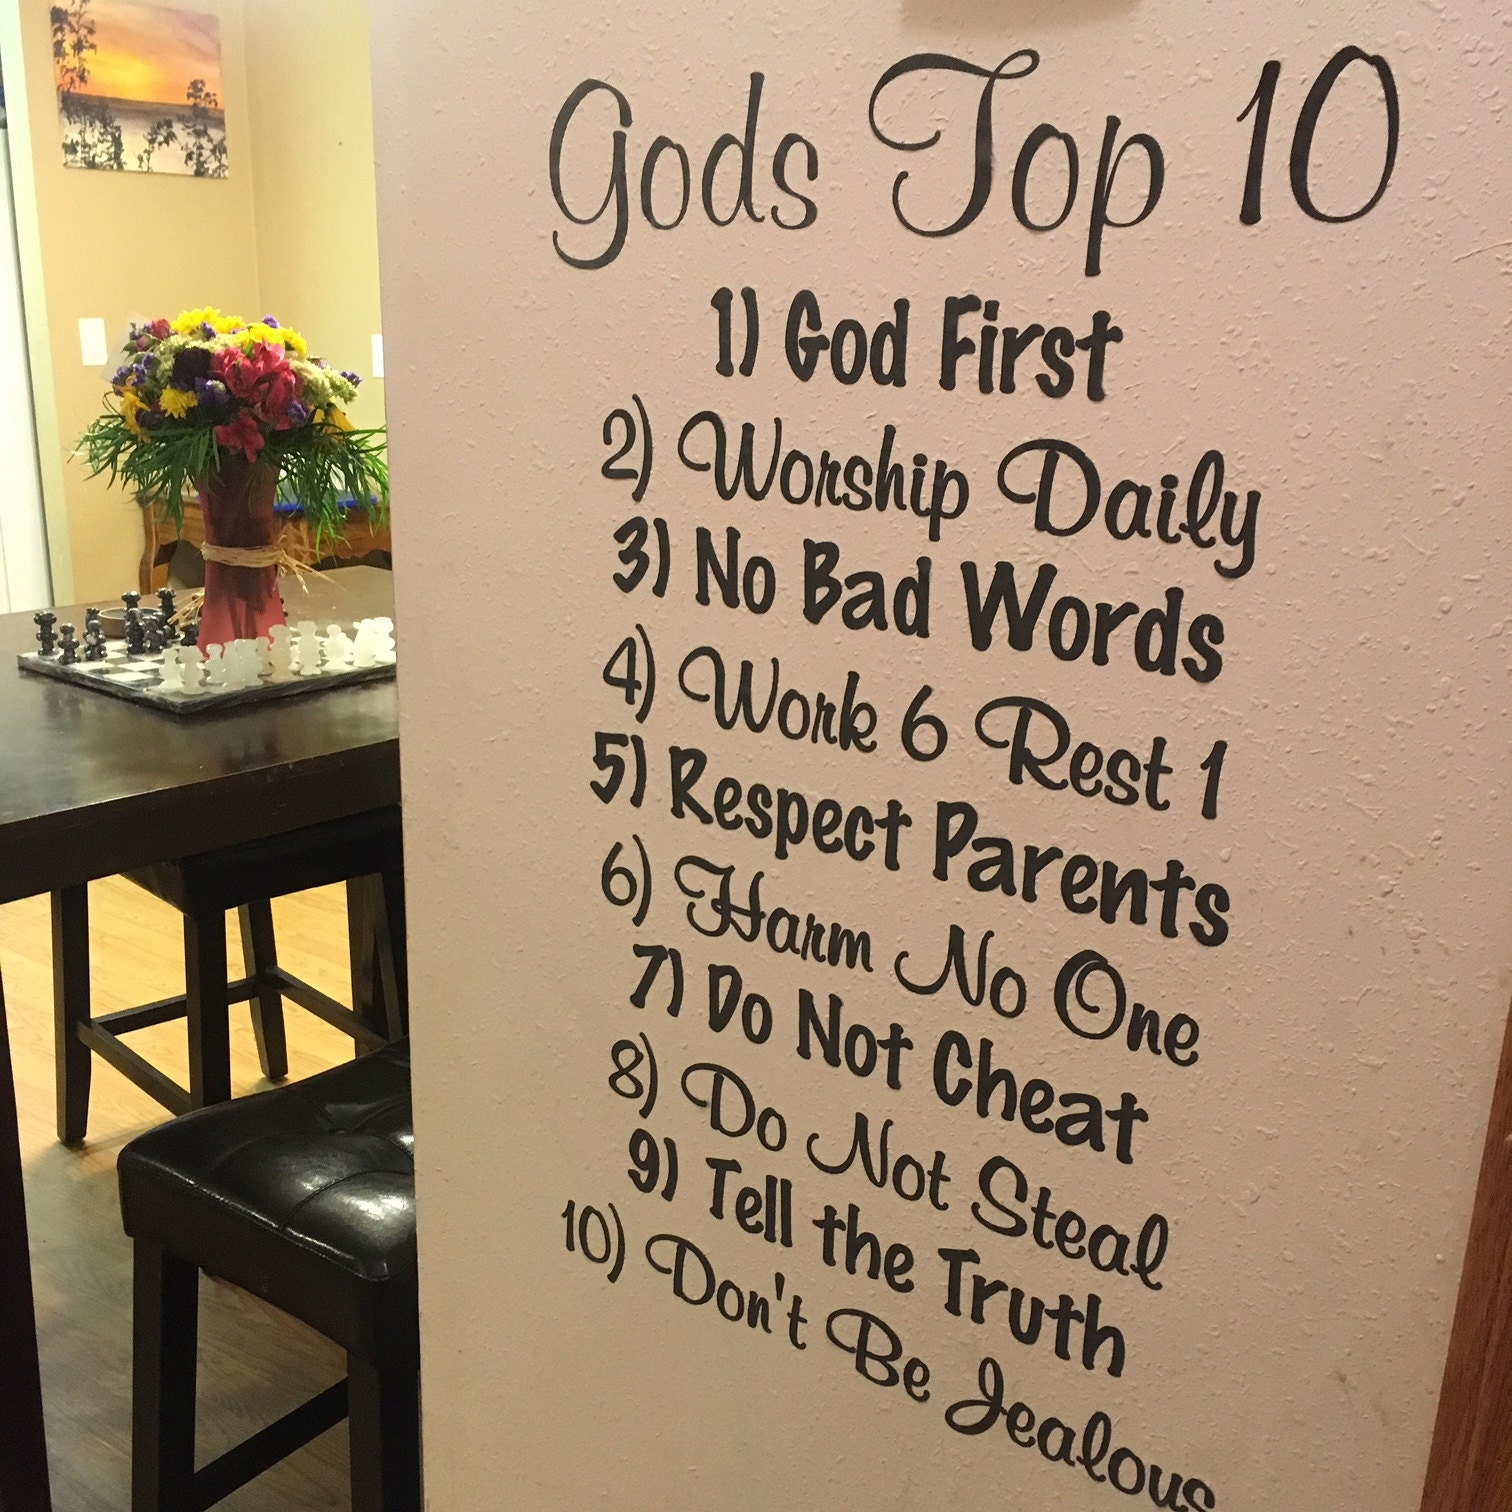 Gods Top 10
1) God First
2) Worship Daily
3) No Bad Words
4) Work 6 Rest 1
5) Respect Parents
6) Harm No One
7) Do Not Cheat
8) Do Not Steal
9) Tell the Truth
10) Don't Be Jealous